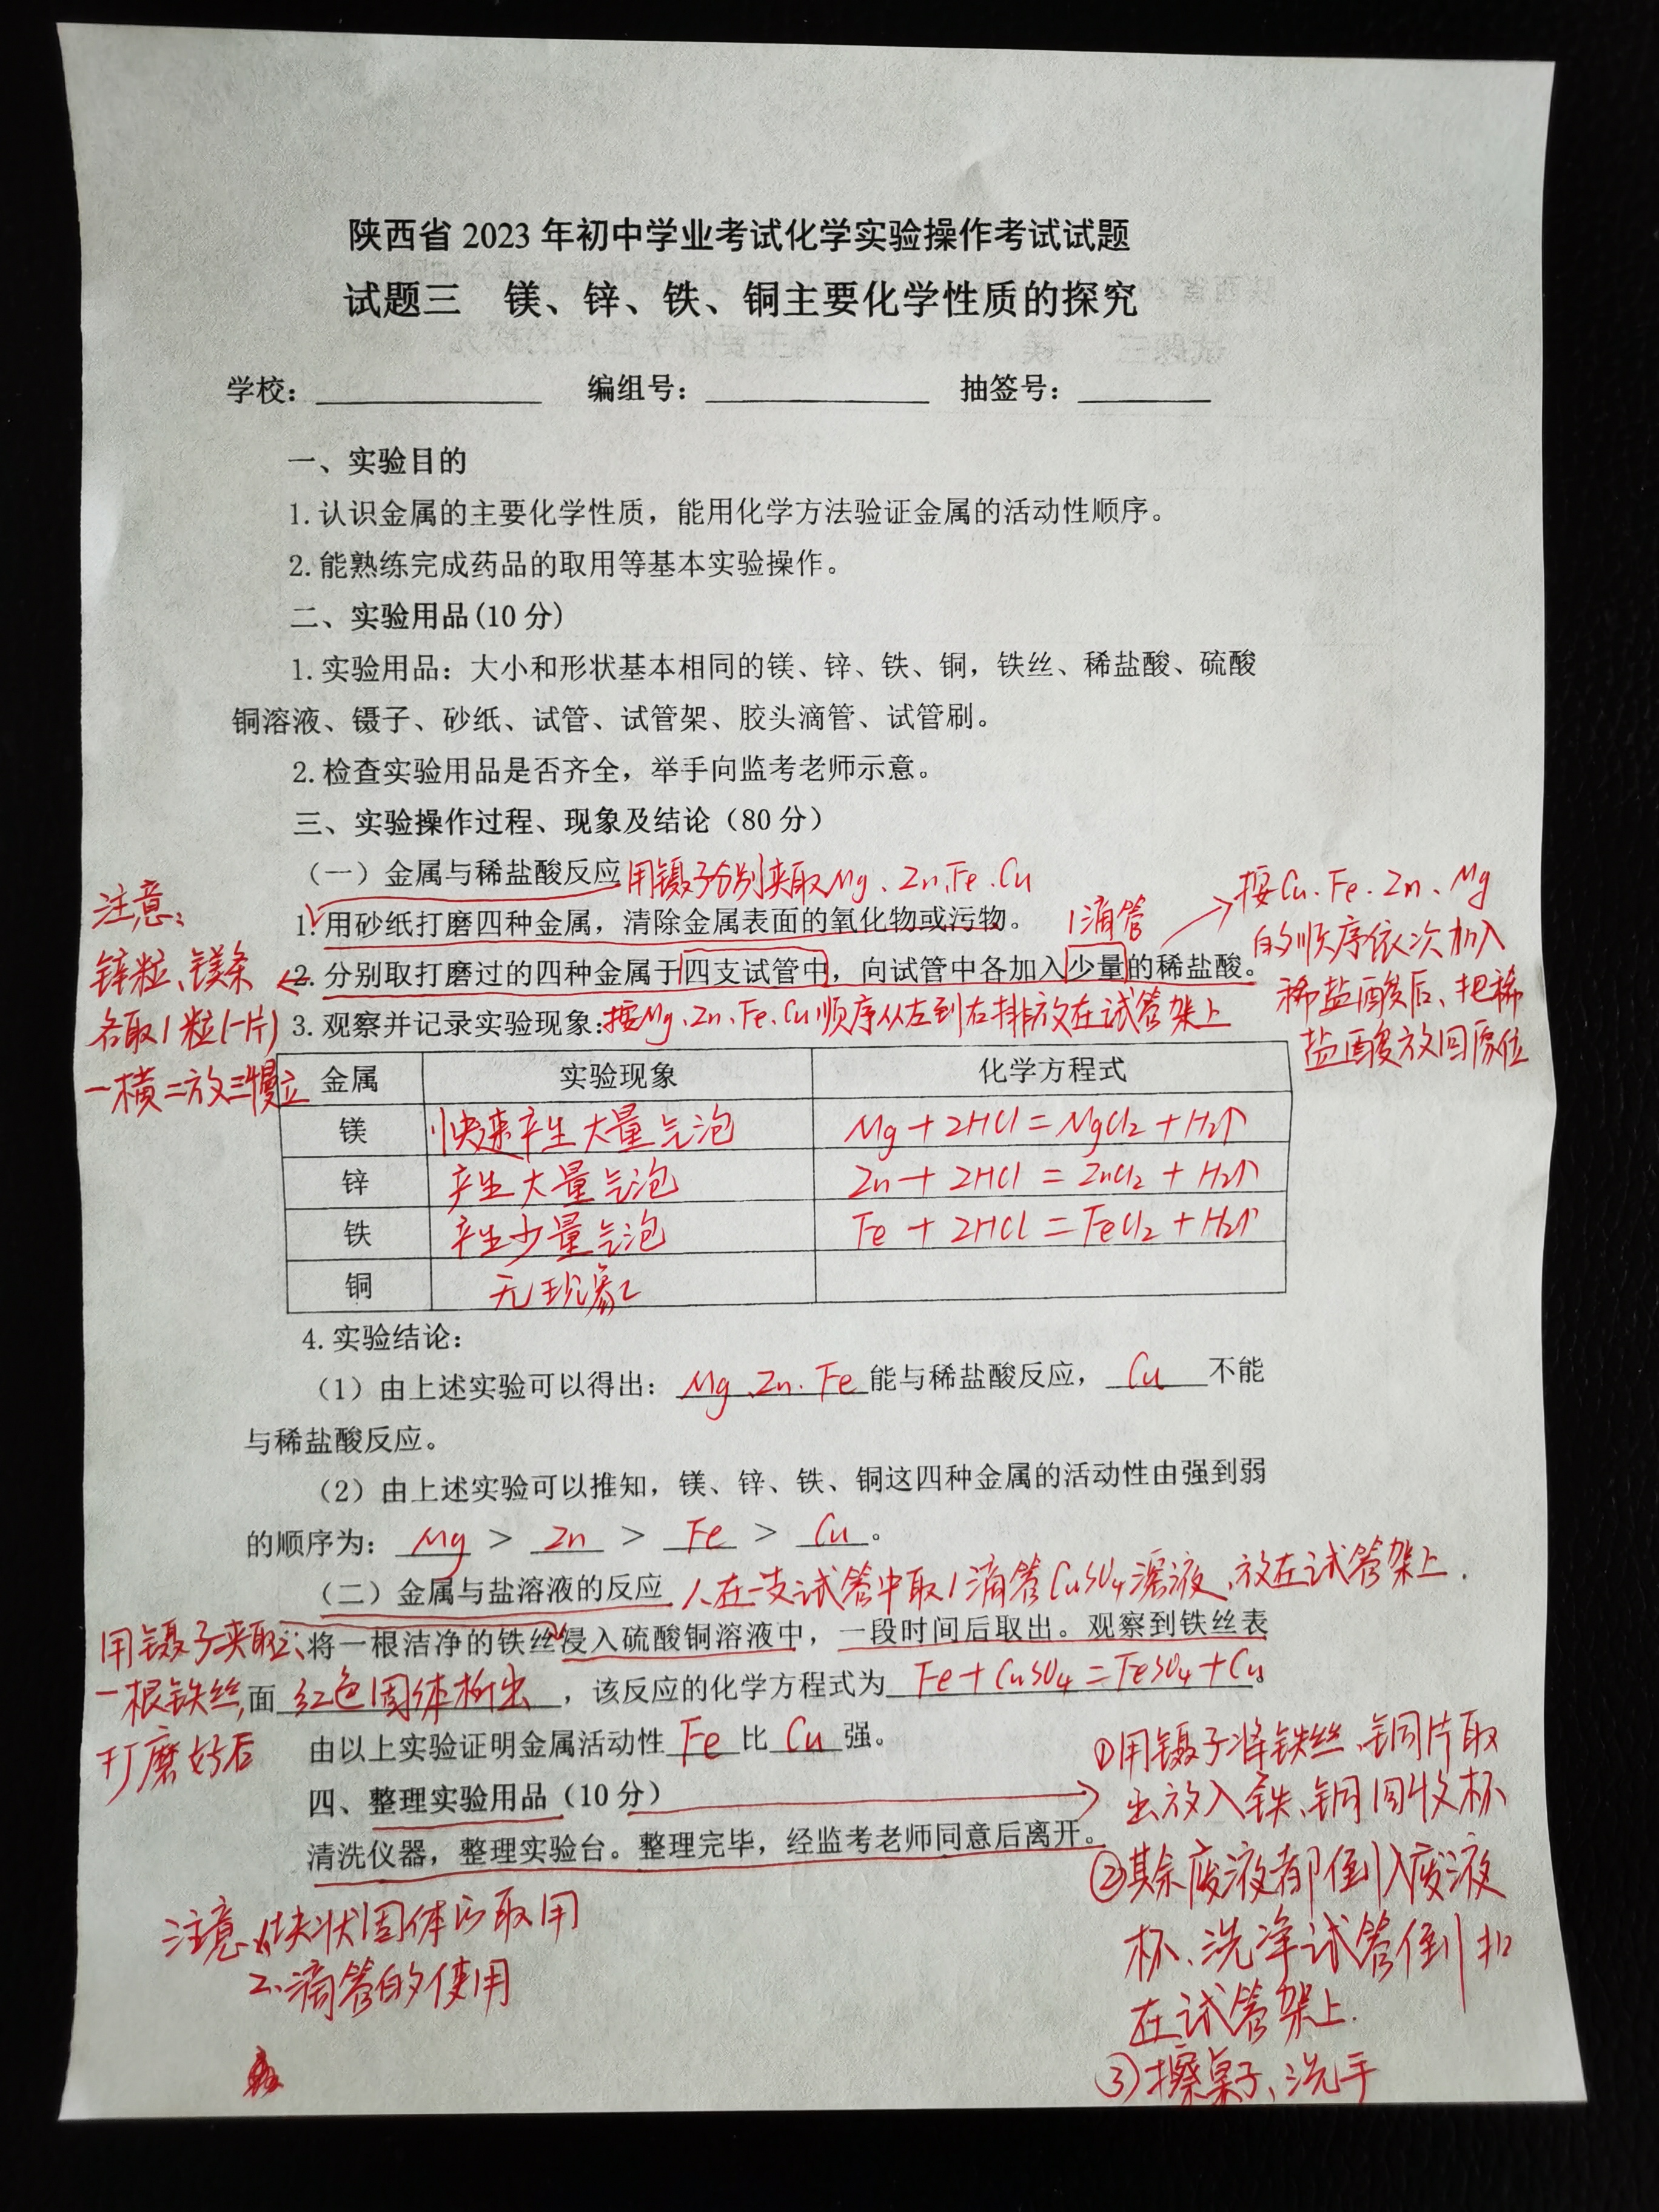 陕西省 2023 年初中学业考试化学实验操作考试试题
试题三 镁、锌、铁、铜主要化学性质的探究
学校： 编组号： 抽签号：
一、实验目的
1.认识金属的主要化学性质，能用化学方法验证金属的活动性顺序。
2.能熟练完成药品的取用等基本实验操作。
二、实验用品(10 分)
1.实验用品：大小和形状基本相同的镁、锌、铁、铜，铁丝、稀盐酸、硫酸
铜溶液、镊子、砂纸、试管、试管架、胶头滴管、试管刷。
2.检查实验用品是否齐全，举手向监考老师示意。
三、实验操作过程、现象及结论（80 分）
（一）金属与稀盐酸反应 用镊子分别夹取Mg、Zn、Fe、Cu
1.用砂纸打磨四种金属，清除金属表面的氧化物或污物。
1滴管
2.分别取打磨过的四种金属于四支试管中，向试管中各加入少量的稀盐酸。
按Cu、Fe、Zn、Mg
的顺序依次加入
稀盐酸后、把稀
盐酸放回原位
注意：
锌粒、镁条
各取1粒(一片)
一横二放三慢立
3.观察并记录实验现象：按Mg、Zn、Fe、Cu顺序从左到右排放在试管架上
金属 实验现象 化学方程式
镁 快速产生大量气泡 Mg + 2HCl = MgCl₂ + H₂↑
锌 产生大量气泡 Zn + 2HCl = ZnCl₂ + H₂↑
铁 产生少量气泡 Fe + 2HCl = FeCl₂ + H₂↑
铜 无现象
4.实验结论：
（1）由上述实验可以得出：Mg、Zn、Fe能与稀盐酸反应，Cu不能
与稀盐酸反应。
（2）由上述实验可以推知，镁、锌、铁、铜这四种金属的活动性由强到弱
的顺序为：Mg > Zn > Fe > Cu。
（二）金属与盐溶液的反应 1、在一支试管中取1滴管CuSO₄溶液、放在试管架上.
用镊子夹取
一根铁丝,
打磨好后
2、将一根洁净的铁丝浸入硫酸铜溶液中，一段时间后取出。观察到铁丝表
面红色固体析出，该反应的化学方程式为Fe+CuSO₄=FeSO₄+Cu。
由以上实验证明金属活动性Fe比Cu强。
四、整理实验用品（10 分）
清洗仪器，整理实验台。整理完毕，经监考老师同意后离开。
①用镊子将铁丝、铜片取
出放入铁、铜回收杯
②其余废液都倒入废液
杯、洗净试管倒扣
在试管架上.
③擦桌子、洗手
注意：1、块状固体的取用
2、滴管的使用